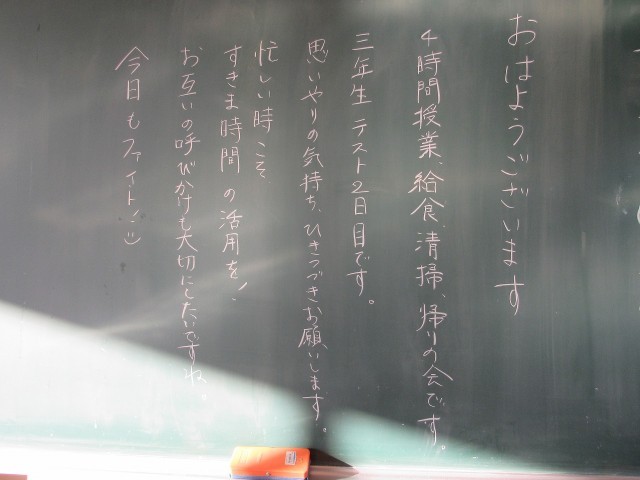 おはようございます
4時間授業、給食、清掃、帰りの会です。
三年生 テスト2日目です。
思いやりの気持ち、ひきつづきお願いします。
忙しい時こそ
すきま時間の活用を!
お互いの呼びかけも大切にしたいですね。
今日もファイト!:)